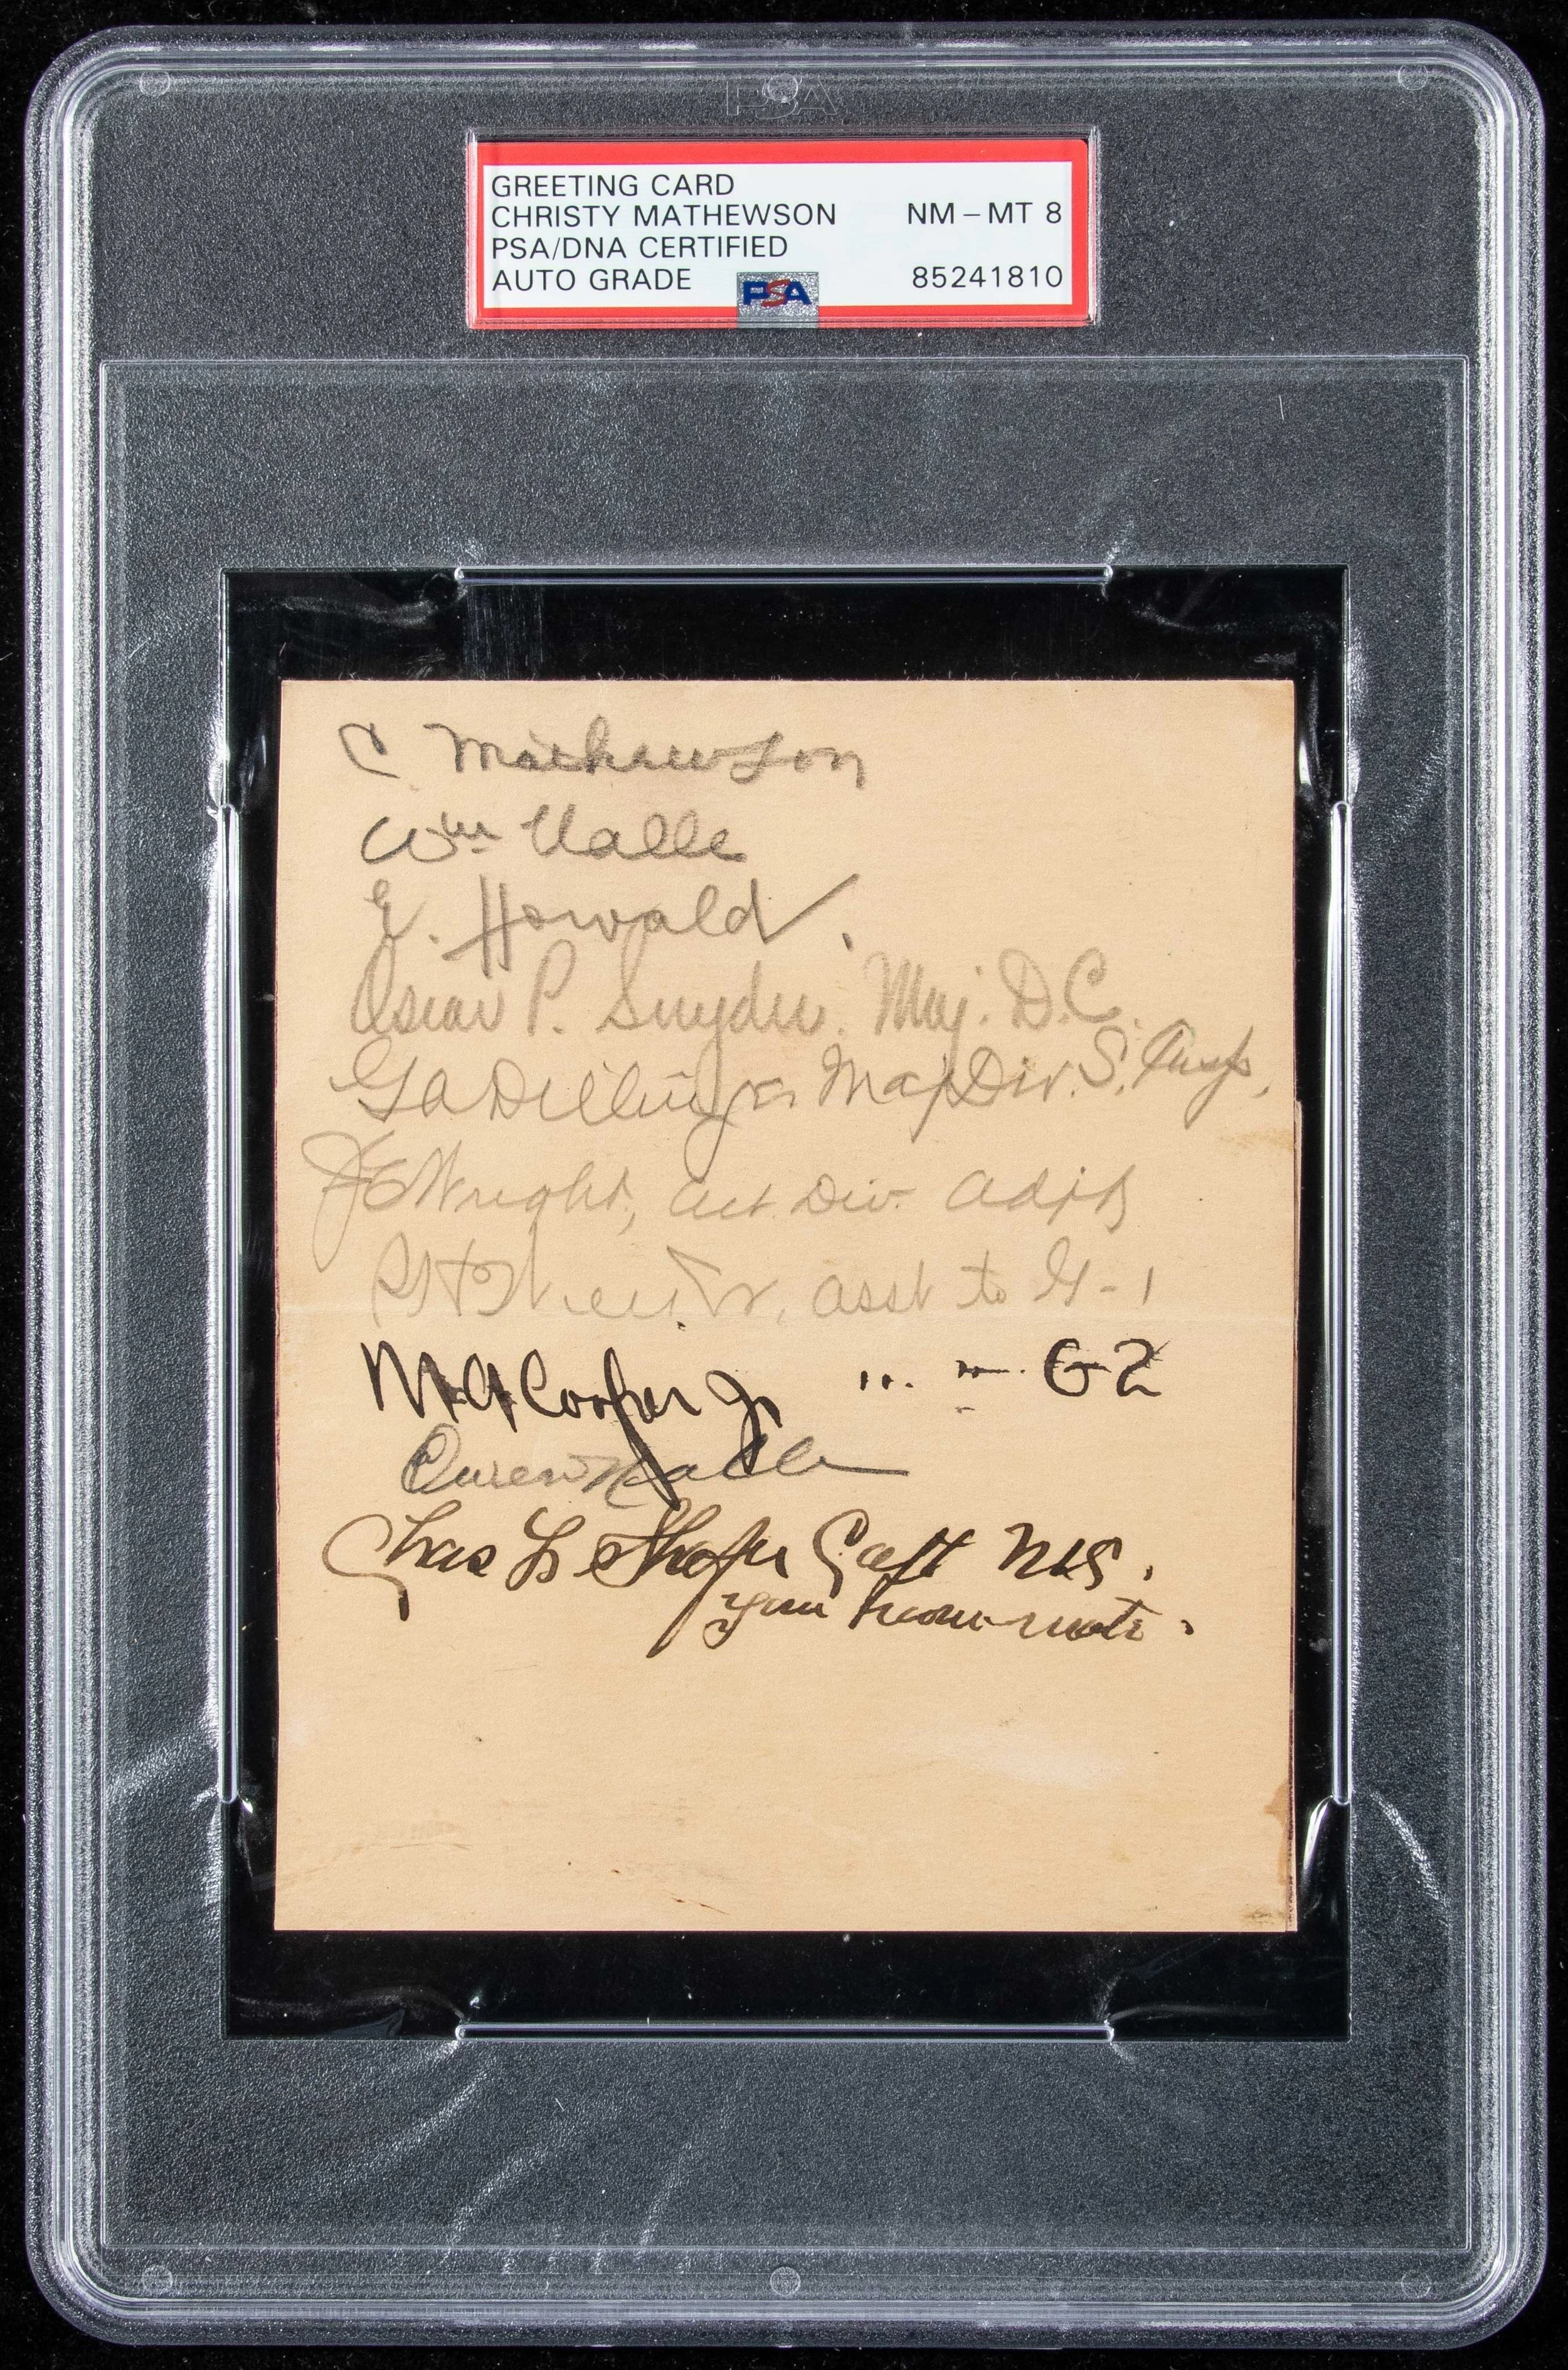 PSA
GREETING CARD
CHRISTY MATHEWSON NM-MT 8
PSA/DNA CERTIFIED
AUTO GRADE PSA 85241810
C Mathewson
Wm Nalle
E. Howald.
Oscar P. Snyder. Maj. D.C.
G A Dillinger Maj Div. S.
J E Wright, Act. Div. Adjt
asst to G-1
M A Cooper Jr " " G2
Owen
Chas L. Shafer Capt
your room-mate.